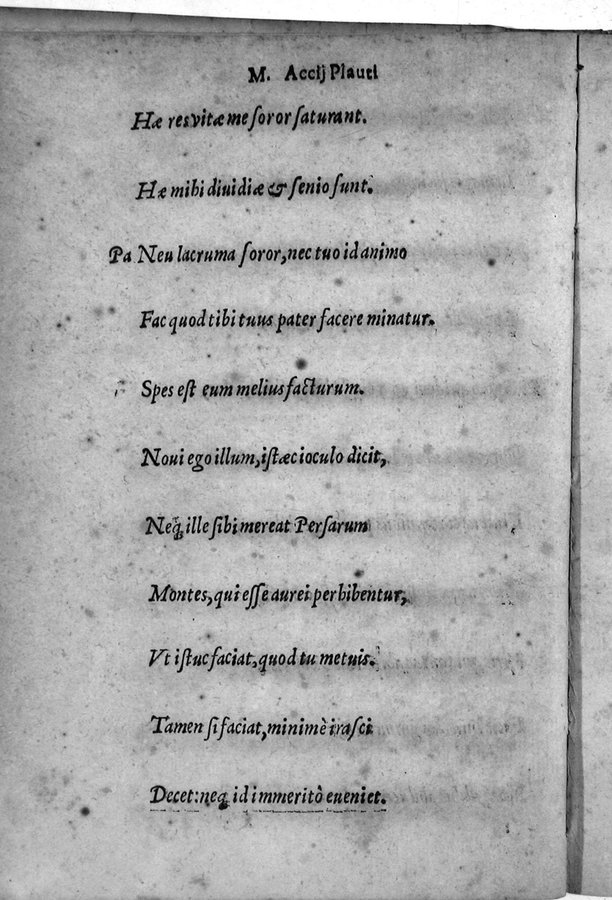 M. Accij Plauti
Hæ res vitæ me ſoror ſaturant.
Hæ mihi diuidiæ & ſenio ſunt.
Pa Neu lacruma ſoror, nec tuo id animo
Fac quod tibi tuus pater facere minatur.
Spes eſt eum melius facturum.
Noui ego illum, iſtæc ioculo dicit,
Neq; ille ſibi mereat Perſarum
Montes, qui eſſe aurei perhibentur,
Vt iſtuc faciat, quod tu metuis.
Tamen ſi faciat, minimè iraſci
Decet: neq; id immeritò eueniet.